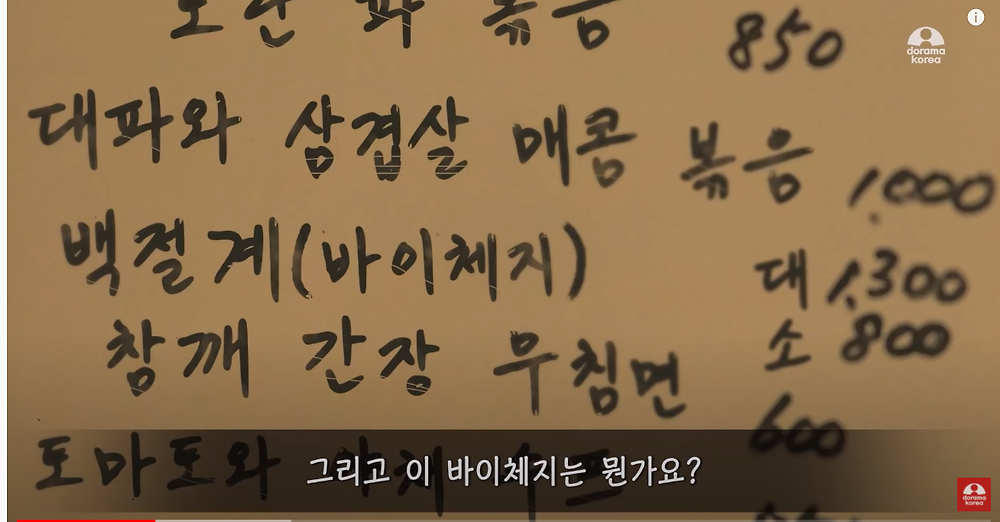 볶음 850
dorama
korea
대파와 삼겹살 매콤 볶음 1,000
백절계(바이체지) 대 1,300
소 800
참깨 간장 무침면
600
토마토와 야채
그리고 이 바이체지는 뭔가요?
dorama
korea